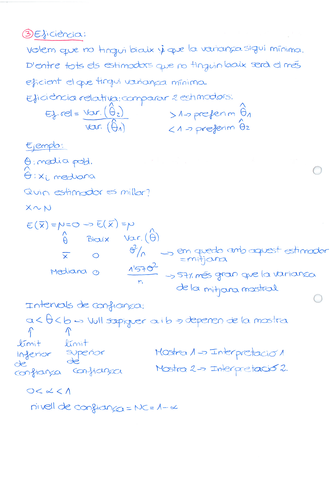 ③ Eficiència:
Volem que no tingui biaix i que la variança sigui mínima.
D'entre tots els estimadors que no tinguin biaix serà el més
eficient el que tingui variança mínima.
Eficiència relativa: comparar 2 estimadors:
Ef. rel = Var. (θ̂2) / Var. (θ̂1) >1 → preferim θ̂1
<1 → preferim θ̂2
Exemple:
θ: media pobl.
θ̂: x̄, mediana
Quin estimador es millor?
X ~ N
E(x̄) = μ = 0 → E(x̄) = μ
θ̂ Biaix Var. (θ̂)
x̄ 0 σ²/n → em quedo amb aquest estimador
= mitjana
Mediana 0 1'57σ²/n → 57% més gran que la variança
de la mitjana mostral.
Intervals de confiança:
a < θ < b → Vull sapiguer a i b → depenen de la mostra
↑ ↑
límit límit
inferior superior Mostra 1 → Interpretació 1
de de
confiança confiança Mostra 2 → Interpretació 2
0 < α < 1
nivell de confiança = NC = 1 - α